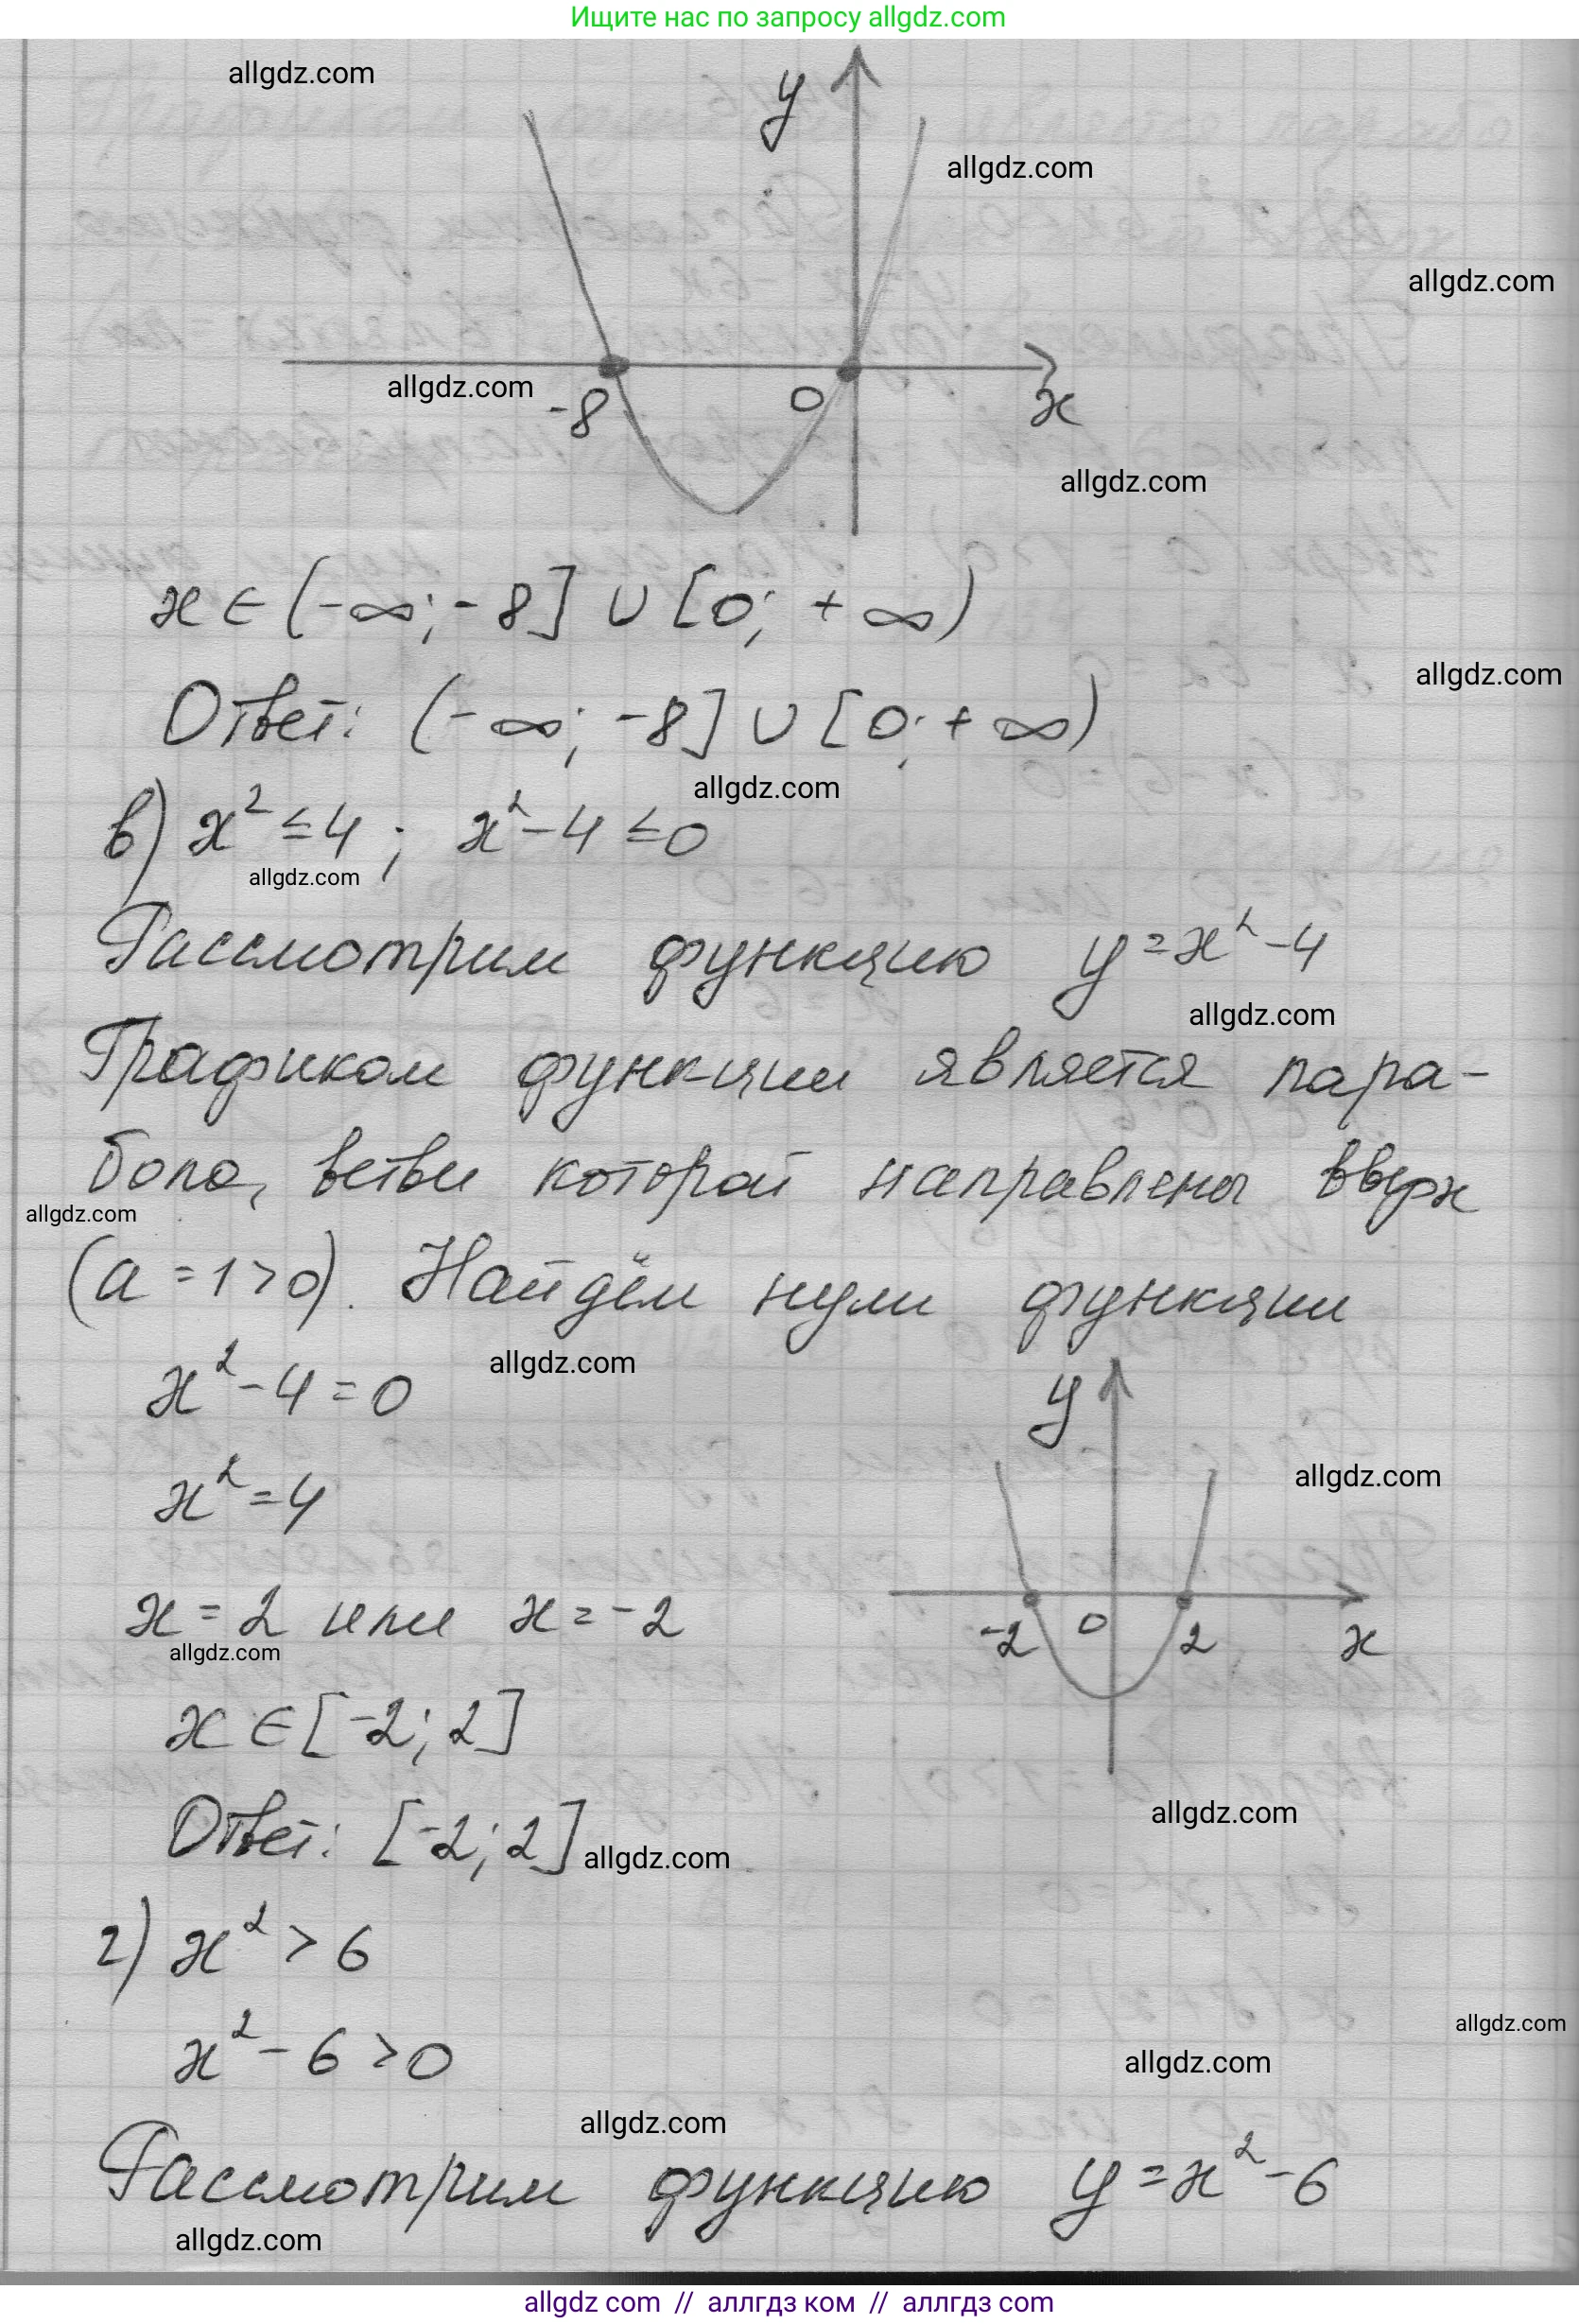 Ищите нас по запросу allgdz.com
allgdz.com
y
allgdz.com
allgdz.com
allgdz.com
-8 0 x
allgdz.com
x ∈ (-∞; -8] ∪ [0; +∞)
allgdz.com
Ответ: (-∞; -8] ∪ [0; +∞)
allgdz.com
в) x² ≤ 4; x² - 4 ≤ 0
allgdz.com
Рассмотрим функцию y = x² - 4
allgdz.com
Графиком функции является пара-
бола, ветви которой направлены вверх
allgdz.com
(a = 1 > 0). Найдём нули функции
allgdz.com
x² - 4 = 0
y
allgdz.com
x² = 4
x = 2 или x = -2
-2 0 2 x
allgdz.com
x ∈ [-2; 2]
allgdz.com
Ответ: [-2; 2]
allgdz.com
г) x² > 6
allgdz.com
x² - 6 > 0
allgdz.com
allgdz.com
Рассмотрим функцию y = x² - 6
allgdz.com
allgdz com // аллгдз ком // аллгдз com